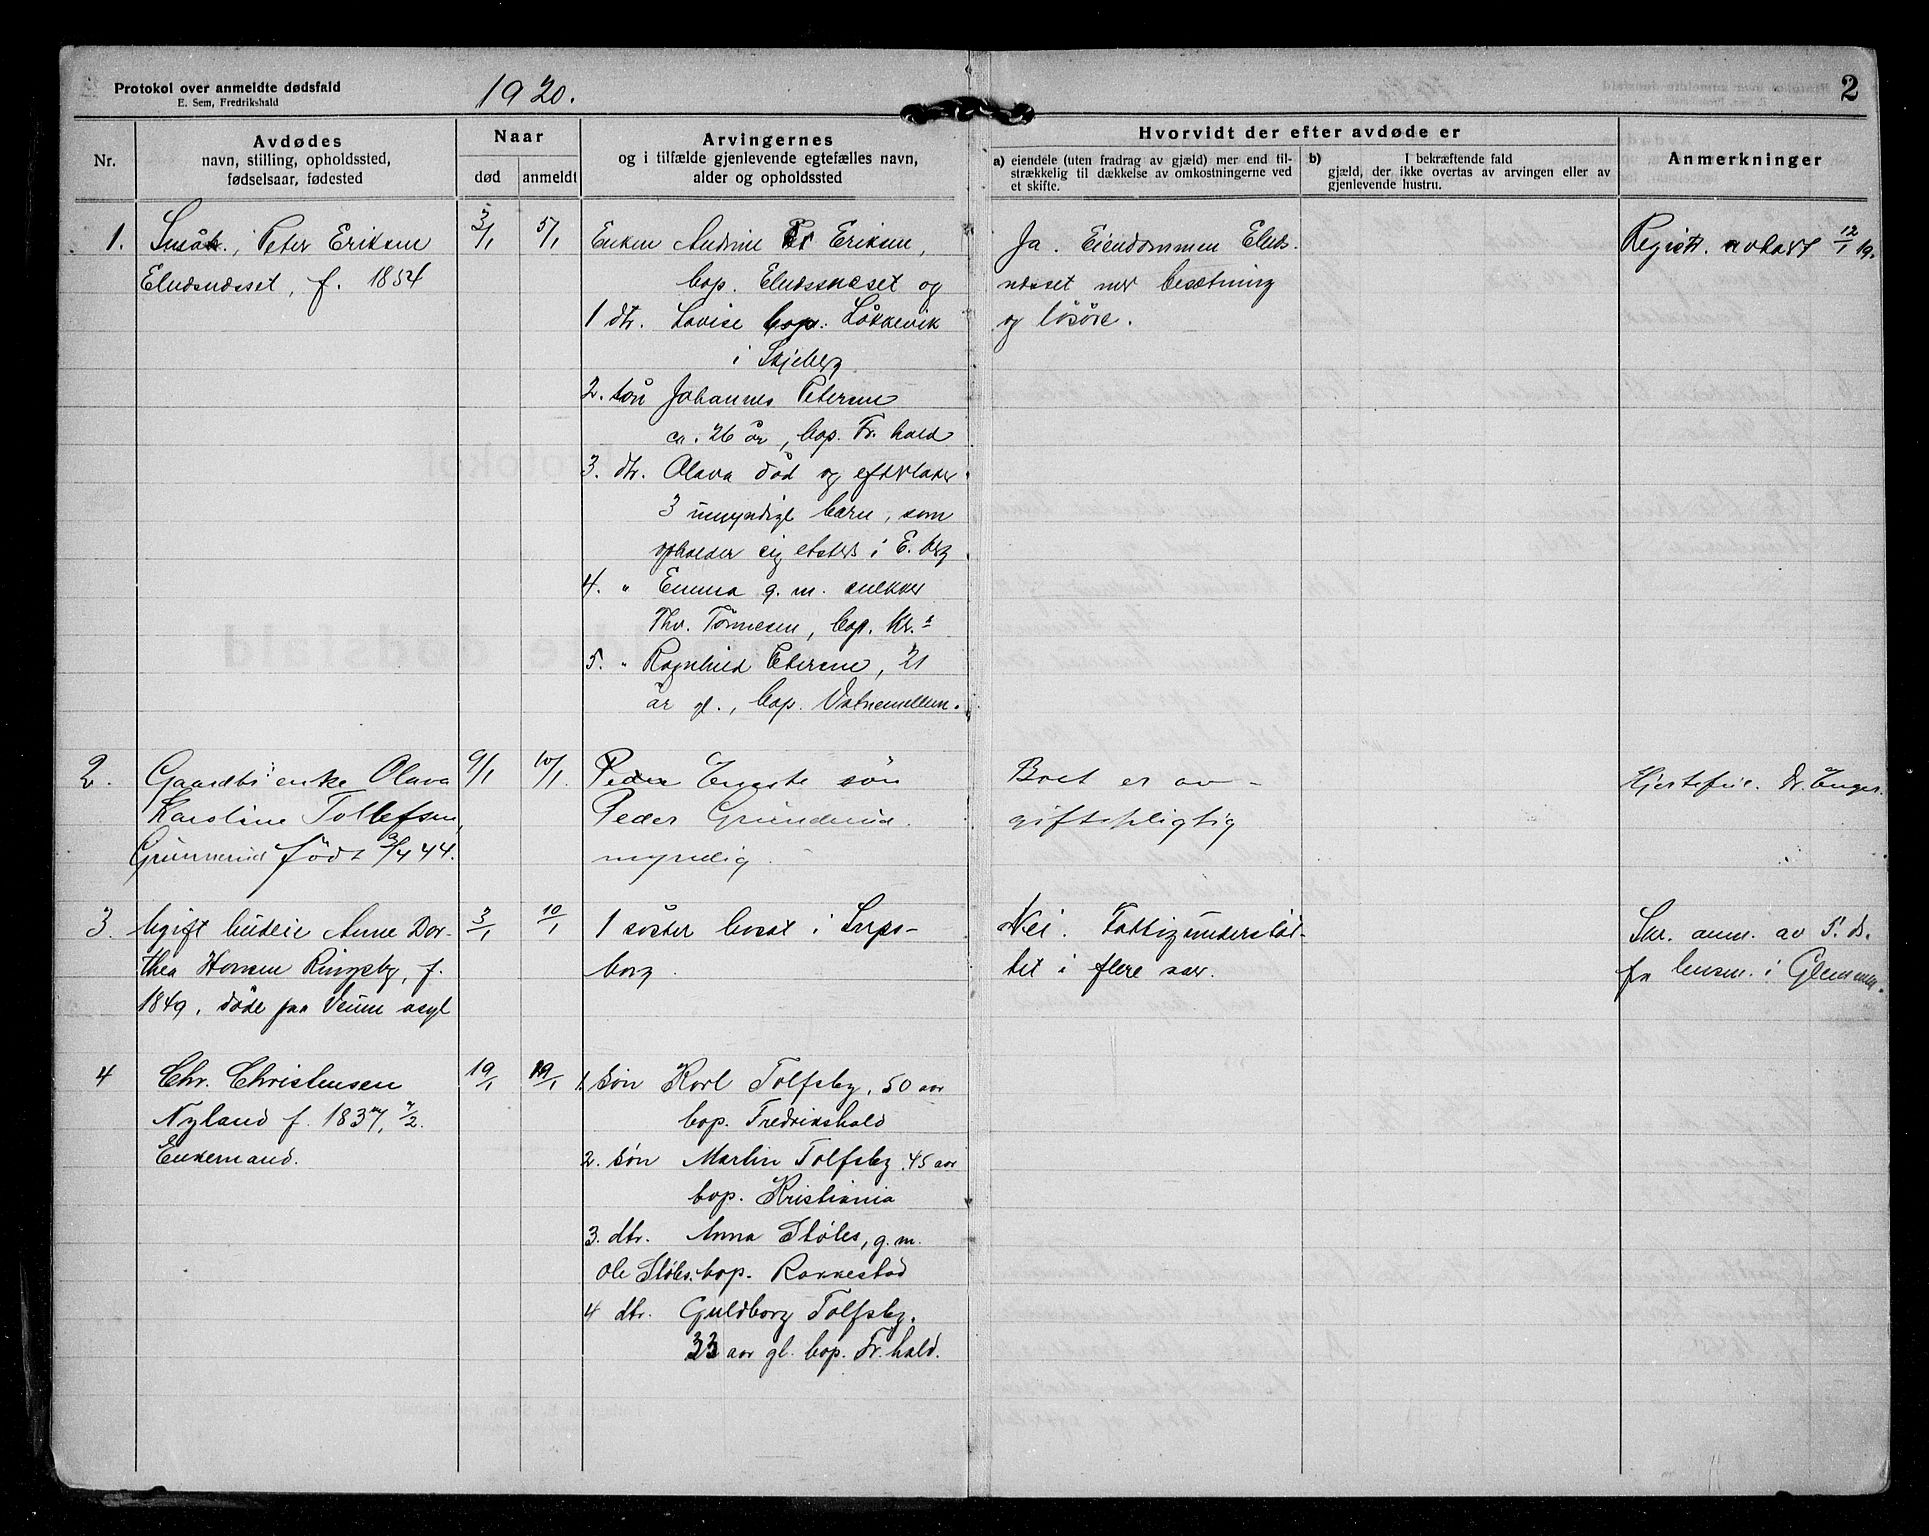 Protokol over anmeldte dødsfald
E. Sem, Fredrikshald
1920.
2
Nr.
Avdødes
navn, stilling, opholdssted,
fødselsaar, fødested
Naar
død
anmeldt
Arvingernes
og i tilfælde gjenlevende egtefælles navn,
alder og opholdssted
Hvorvidt der efter avdøde er
a) eiendele (uten fradrag av gjæld) mer end til-
strækkelig til dækkelse av omkostningerne ved
et skifte.
b) I bekræftende fald
gjæld, der ikke overtas av arvingen eller av
gjenlevende hustru.
Anmerkninger
1.
Småb., Peter Eriksen
f. 1854
3/1
5/1
Enken Andrine Eriksen,
bop. og
1 dtr. Lovise bop. Løkkevik
i Skjeberg
2. søn Johannes Petersen
ca. 26 år, bop. Fr.hald
3. dtr. Olava død og efterlater
3 umyndige barn, som
opholder sig etsteds i E.berg
4. " Emma g. m. snekker
Thv. Tønnesen, bop. Kr.a
5. " Ragnhild Petersen, 21
år gl., bop.
Ja. Eiendommen Elnds-
næsset med besætning
og løsøre.
Registr. avholdt 12/1 19.
2.
Gaardbr. enke Olava
Karoline Tollefsen,
født 2/4 44.
9/1
10/1
Eneste søn
Peder
myndig.
Boet er av-
giftspligtig
Hjertefeil. Dr. Enger.
3.
Ugift budeie Anne Dor-
thea Hansen Ringsby, f.
1849, døde paa Veum asyl
3/1
10/1
1 søster bosat i Sarps-
borg.
Nei. Fattigunderstøt-
tet i flere aar.
Skr. anm. av 5. ds.
fra lensm. i Glemmen.
4
Chr. Christensen
Nyland f. 1837, 7/2.
Enkemand.
19/1
19/1
1. søn Karl Tolfsby, 50 aar
bop. Fredrikshald
2. søn Martin Tolfsby, 45 aar
bop. Kristiania
3. dtr. Anna Støles, g. m.
Ole Støles. bop. Rakkestad
4 dtr. Guldborg Tolfsby.
33 aar gl. bop. Fr.hald.